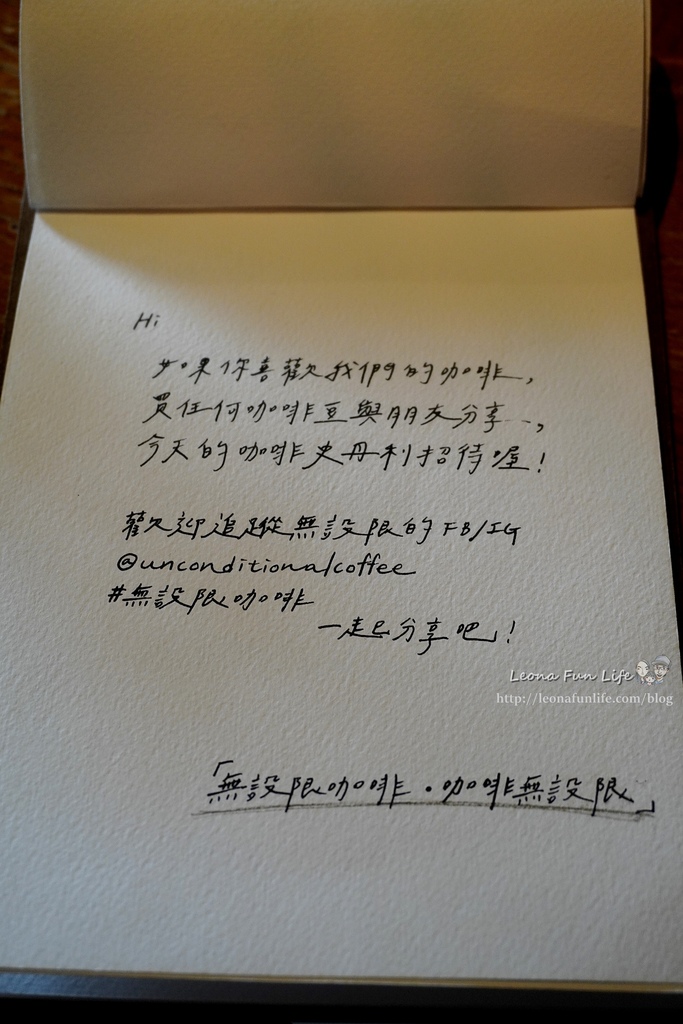 Hi
如果你喜歡我們的咖啡,
買任何咖啡豆與朋友分享…,
今天的咖啡史丹利招待喔!
歡迎追蹤無設限的FB/IG
@unconditionalcoffee
#無設限咖啡
一起分享吧!
Leona Fun Life
http://leonafunlife.com/blog
「無設限咖啡・咖啡無設限」